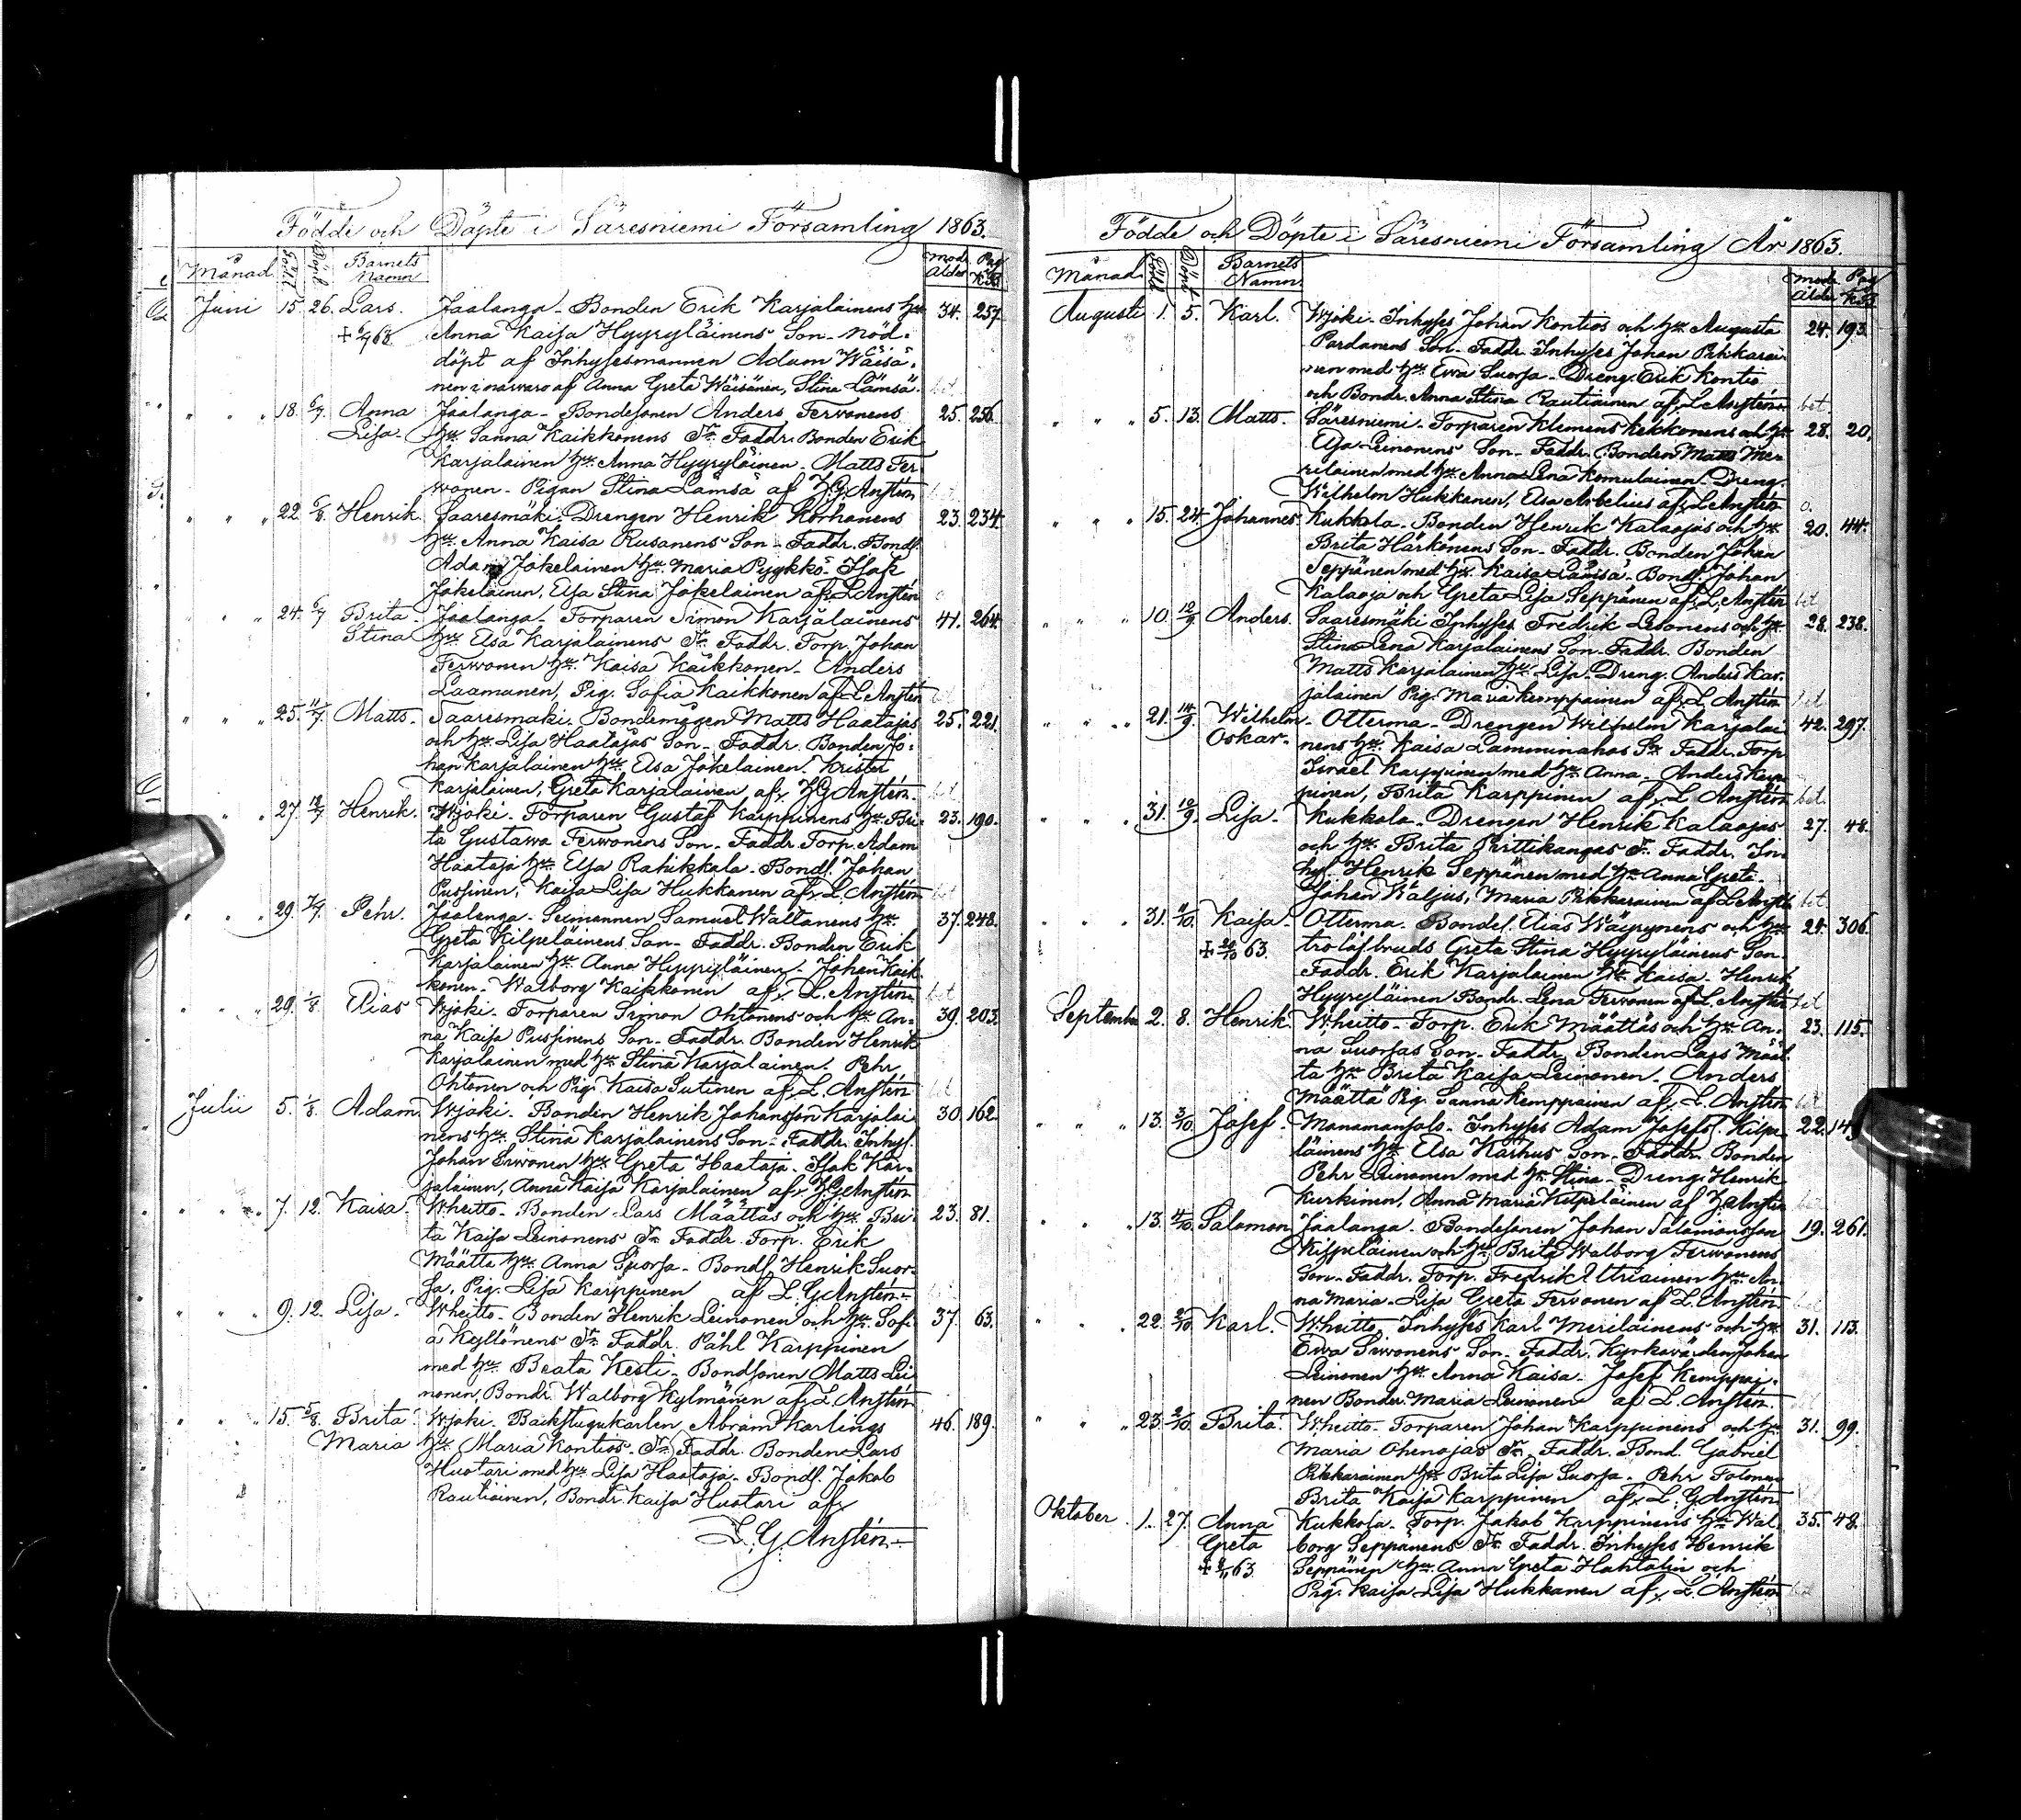 Födde och Döpte i Säresniemi Församling 1863.
Månad Född Döpt Barnets Namn Mod. Ålder Pag. K.B.
Juni 15. 26. Lars. Jaalanga - Bonden Erik Karjalainens hu 34. 257.
Anna Kaisa Hyyryläinens Son - nöd-
döpt af Inhysesmannen Adam Wäisä-
nen i närvaro af Anna Greta Wäisänen, Stina Lämsä. bet
" " 18. 6/7 Anna Jaalanga - Bondesonen Anders Terwonens 25. 256.
Lisa. hu Sanna Kaikkonens Dr. Faddr. Bonden Erik
Karjalainen hu Anna Hyyryläinen - Matts Ter-
wonen - Pigan Stina Lämsä af L.G. Anstén
" " 22. 6/8. Henrik Saaresmäki - Drengen Henrik Korhonens 23. 234.
hu Anna Kaisa Rusanens Son - Faddr. Bond.
Adam Jokelainen hu Maria Pyykkö - Isak
Jokelainen, Elsa Stina Jokelainen af L. Anstén
" " 24. 6/7 Brita Jaalanga - Torparen Simon Karjalainens 41. 264.
Stina hu Elsa Karjalainens Dr. Faddr. Torp. Johan
Terwonen hu Kaisa Kaikkonen - Anders
Laamanen, Pig. Sofia Kaikkonen af L. Anstén
" " 25. 11/7 Matts. Saaresmäki. Bondemågen Matts Haatajas 25. 221.
och hu Lisa Haatajas Son - Faddr. Bonden Jo-
han Karjalainen hu Elsa Jokelainen. Krister
Karjalainen, Greta Karjalainen af L.G. Anstén.
" 27. 12/7 Henrik. Wjoki - Torparen Gustaf Karppinens hu Bri- 23. 190.
ta Gustawa Terwonens Son - Faddr. Torp. Adam
Haataja hu Elsa Rahikkala - Bond. Johan
Pussinen, Kaisa Lisa Hukkanen af L. Anstén
" 29. Pehr. Jaalanga - Samuel Waltanens hu 37. 248.
Greta Kilpeläinens Son - Faddr. Bonden Erik
Karjalainen hu Anna Hyyryläinen - Johan Kaik-
konen - Walborg Kaikkonen af L. Anstén.
" 29. 1/8. Elias Wjoki - Torparen Simon Ohtonens och hu An- 39. 203.
na Kaisa Pussinens Son - Faddr. Bonden Henrik
Karjalainen med hu Stina Karjalainen. Pehr
Ohtonen och Pig. Kaisa Sutinen af L. Anstén
Julii 5. 1/8. Adam Wjoki - Bonden Henrik Johansson Karjalai- 30. 162
nens hu Stina Karjalainens Son - Faddr. Inhys.
Johan Sirwonen hu Greta Haataja - Isak Kar-
jalainen, Anna Kaisa Karjalainen af L.G. Anstén
" " 7. 12. Kaisa. Wheitto - Bonden Lars Määttäs och hu Bri- 23. 81.
ta Kaisa Leinonens Dr. Faddr. Torp. Erik
Määttä hu Anna Suorsa - Bond. Henrik Suor-
sa, Pig. Lisa Karppinen af L. G Anstén.-
" " 9. 12. Lisa. Wheitto - Bonden Henrik Leinonen och hu Sofi- 37. 63.
a Kyllönens Dr. Faddr. Påhl Karppinen
med hu Beata Kesti - Bondsonen Matts Lei-
nonen, Bondr. Walborg Kylmänen af L. Anstén
" " 15. 5/8. Brita Wjoki. Backstugukarlen Abram Karlings 46. 189.
Maria hu Maria Kontios - Dr. Faddr. Bonden Lars
Huotari med hu Lisa Haataja - Bond. Jakob
Rautiainen, Bondr. Kaisa Huotari af
L. G Anstén.-
Födde och Döpte i Säresniemi Församling År 1863.
Månad Född Döpt Barnets Namn Mod. Ålder Pag. K.B.
Augusti 1. 5. Karl. Wjoki - Inhyses Johan Kontios och hu Augusta 24. 193.
Pardanens Son - Faddr. Inhyses Johan Pikkarai-
nen med hu Ewa Suorsa - Dreng. Erik Kontio
och Bondr. Anna Stina Rautiainen af L. Anstén bet.
" " 5. 13. Matts. Säresniemi - Torparen Klemens Kekkonens och hu 28. 20.
Elsa Leinonens Son - Faddr. Bonden Matts Mer-
riläinen med hu Anna Lena Komulainen - Dreng.
Wilhelm Hukkanen, Elsa Arbelius af L. Anstén
" " 15. 24. Johannes. Kukkola - Bonden Henrik Kalaojas och hu 20. 44.
Brita Härkönens Son - Faddr. Bonden Johan
Seppänen med hu Kaisa Lämsä - Bond. Johan
Kalaoja och Greta Lisa Seppänen af L. Anstén bet
" " 10. 12/9. Anders. Saaresmäki Inhyses Fredrik Leinonens och hu 28. 238.
Stina Lena Karjalainens Son - Faddr. Bonden
Matts Karjalainen hu Lisa - Dreng. Anders Kar-
jalainen Pig. Maria Kemppainen af L. Anstén bet
" " 21. 14/9. Wilhelm Otterma - Drengen Wilhelm Karjalai- 42. 297.
Oskar. nens hu Kaisa Lamminahos Sn Faddr. Torp.
Israel Karppinen med hu Anna - Anders Karp-
pinen, Brita Karppinen af L. Anstén bet.
" " 31. 12/9. Lisa. Kukkola - Drengen Henrik Kalaojas 27. 48.
och hu Brita Pirttikangas Dr. Faddr. In-
hys. Henrik Seppänen med hu Anna Greta -
Johan Waljus, Maria Pikkarainen af L. Anstén bet
" " 31. 11/10. Kaisa. Otterma. Bonds. Elias Wäyrynens och hu 24. 306.
+ 20/10 63. trolofbruds Greta Stina Hyyryläinens Son.
Faddr. Erik Karjalainen hu Kaisa - Henrik
Hyyryläinen Bondr. Lena Terwonen af L. Anstén bet
September 2. 8. Henrik. Wheitto - Torp. Erik Määttäs och hu An- 23. 115.
na Suorsas Son - Faddr. Bonden Lars Määt-
tä hu Brita Kaisa Leinonen - Anders
Määttä Pig. Sanna Kemppainen af L. Anstén
" " 13. 3/10. Josef. Manamansalo - Inhyses Adam Josefs. Kilpe- 22.
läinens hu Elsa Karhus Son - Faddr. Bonden
Pehr Leinonen med hu Stina - Dreng. Henrik
Kurkinen, Anna Maria Kilpeläinen af L. Anstén
" " 13. 4/10. Salomon Jaalanga - Bondesonen Johan Salomonsson 19. 261.
Kilpeläinen och hu Brita Walborg Terwonens
Son - Faddr. Torp. Fredrik Utriainen hu An-
na Maria - Lisa Greta Terwonen af L. Anstén.
" " 22. 2/10 Karl. Wheitto - Inhyses Karl Meriläinens och hu 31. 113.
Ewa Sirwonens Son - Faddr. Kyrkovärden Johan
Leinonen hu Anna Kaisa - Josef Kemppai-
nen Bondr. Maria Leinonen af L. Anstén.
" " 23. 2/10. Brita. Wheitto - Torparen Johan Karppinens och hu 31. 99.
Maria Ohenojas Dr. Faddr. Bond. Gabriel
Pikkarainen hu Brita Lisa Suorsa - Pehr Tolonen
Brita Kaisa Karppinen af L. G Anstén
Oktober 1. 27. Anna Kukkola - Torp. Jakob Karppinens hu Wal- 35. 48.
Greta borg Seppänens Dr. Faddr. Inhyses Henrik
+ 8/11 63. Seppänen hu Anna Greta Hahtalin och
Pig. Kaisa Lisa Hukkanen af L. Anstén